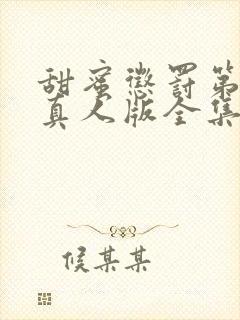 甜蜜惩罚第
真人版全集
候某某